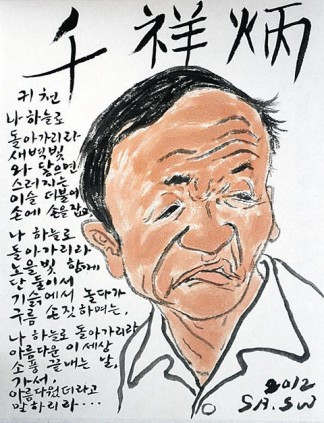 千祥炳
귀천
나 하늘로
돌아가리라
새벽빛
와 닿으면
스러지는
이슬 더불어
손에 손을 잡고
나 하늘로
돌아가리라
노을빛 함께
단 둘이서
기슭에서 놀다가
구름 손짓하며는,
나 하늘로 돌아가리라
아름다운 이 세상
소풍 끝내는 날,
가서,
아름다웠더라고
말하리라...
2012
SH.SW